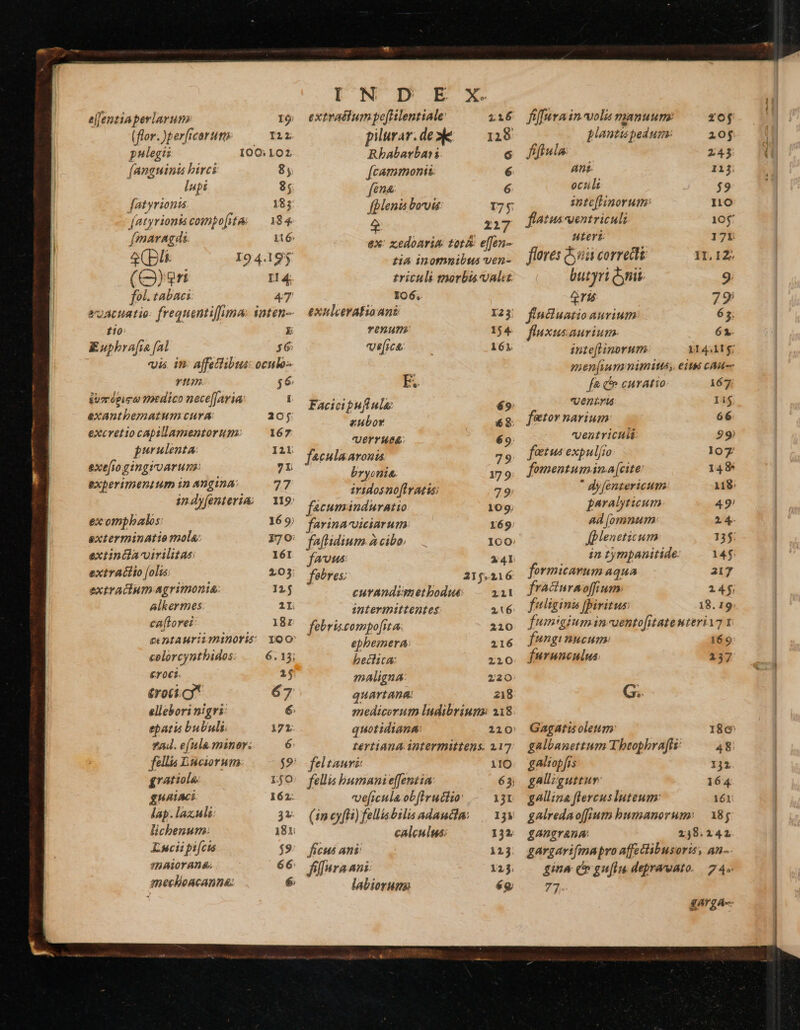 INDEX.
essentia perlarum 19
(flor.) persicorum 122
pulegii 100.102
sanguinis hirci 85
lupi 85
satyrionis 183
satyrionis composita 184
smaragdi 116
194.195
114
fol. tabaci 47
evacuatio frequentissima inten-
tio 1
Euphrasia sal 56
vis in affectibus oculo-
rum 56
medico necessaria 1
exanthematum cura 205
excretio capillamentorum 167
purulenta 121
exesio gingivarum 71
experimentum in angina 77
in dysenteria 119
ex omphalos 169
exterminatio mola 170
extincta virilitas 161
extractio solis 203
extractum agrimonia 125
alkermes 21
castorei 181
centaurii minoris 100
colocynthidos 6.13
croci 25
croci ♂ 67
ellebori nigri 6
epatis bubuli 172
rad. esula minor. 6
fellis Luciorum 59
gratiola 150
guaiaci 162
lap. lazuli 32
lichenum 181
Lucii piscis 59
maiorana 66
mechoacanna 6
extractum pestilentiale 216
pilurar. de 128
Rhabarbari 6
scammonii 6
sena 6
splenis bovis 175
♀ 227
ex zedoaria tota essen-
tia in omnibus ven-
triculi morbis valet
106.
exulceratio ani 123
renum 154
vesica 161
F.
Facici pustula 69
rubor 68
verruca 69
facula aronis 79
bryonia 179
iridos nostratis 79
facum induratio 109
farina viciarum 169
fastidium à cibo 100
favus 241
febres 215.216
curandi methodus 221
intermittentes 216
febris composita 220
ephemera 216
hectica 220
maligna 220
quartana 218
medicorum ludibrium 218
quotidiana 210
tertiana intermittens 217
fel tauri 110
fellis humani essentia 63
vesicula obstructio 131
(in cysti) fellis bilis adaucta 131
calculus 132
ficus ani 123
fissura ani 123
labiorum 69
fissura in volis manuum 205
plantis pedum 205
fistula 243
ani 123
oculi 59
intestinorum 110
flatus ventriculi 105
uteri 171
flores correcti 11.12
butyri 9
79
fluctuatio aurium 63
fluxus aurium 62
intestinorum 114.115
mensium nimius, eius cau-
sa & curatio 167
ventris 115
fœtor narium 66
ventriculi 99
fœtus expulsio 107
fomentum in ascite 148
dysentericum 118
paralyticum 49
ad somnum 24
spleneticum 135
in tympanitide 145
formicarum aqua 217
fractura ossium 245
fuliginis spiritus 18.19
fumigium in ventositate uteri 171
fungi nucum 169
furunculus 237
G.
Gagatis oleum 180
galbanettum Theophrasti 48
galiopsis 132
galli guttur 164
gallina stercus luteum 161
galreda ossium humanorum 185
gangrana 238.242
gargarisma pro affectibus oris, an-
gina & gustu depravato 74.
77.
garga-